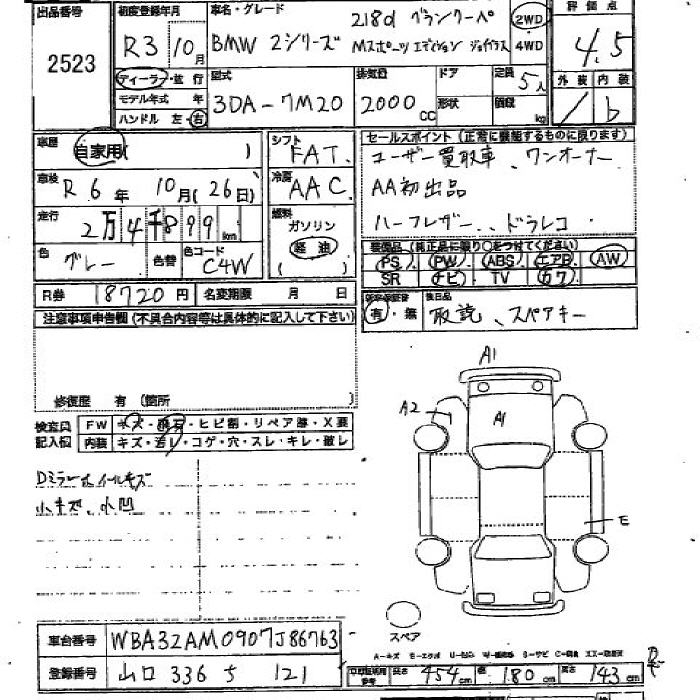 出品番号
2523
初度登録年月
R3 10月
車名・グレード
BMW 2シリーズ
218d グランクーペ
Mスポーツ エディション ジョイプラス
2WD
4WD
評価点
4.5
外装 内装
b
ディーラー・並行
モデル年式 年
ハンドル 左・右
型式
3DA-7M20
排気量
2000cc
ドア
形状
定員 5人
積載 kg
車歴
自家用( )
車検
R6年 10月(26日)
走行
2万4千899km
色
グレー
色替
色コード
C4W
シフト
FAT.
冷房
AAC
燃料
ガソリン
軽油
( )
R券 18720円
名変期限 月 日
セールスポイント(正常に機能するものに限ります)
ユーザー買取車、ワンオーナー
AA初出品
ハーフレザー、ドラレコ
装備品(純正品に限り○をつけてください)
PS PW ABS エアB AW
SR ナビ TV カワ
新車保証書
有・無
後日品
取説、スペアキー
注意事項申告欄(不具合内容等は具体的に記入して下さい)
修復歴 有(箇所 )
検査員
記入欄
FW キズ・飛石・ヒビ割・リペア跡・X要
内装 キズ・汚レ・コゲ・穴・スレ・キレ・破レ
Dミラーホイールキズ
小キズ、小凹
A1
A2
A1
E
スペア
車台番号
WBA32AM0907J86763
登録番号
山口 336 ち 121
長さ 454cm 幅 180cm 高さ 143cm